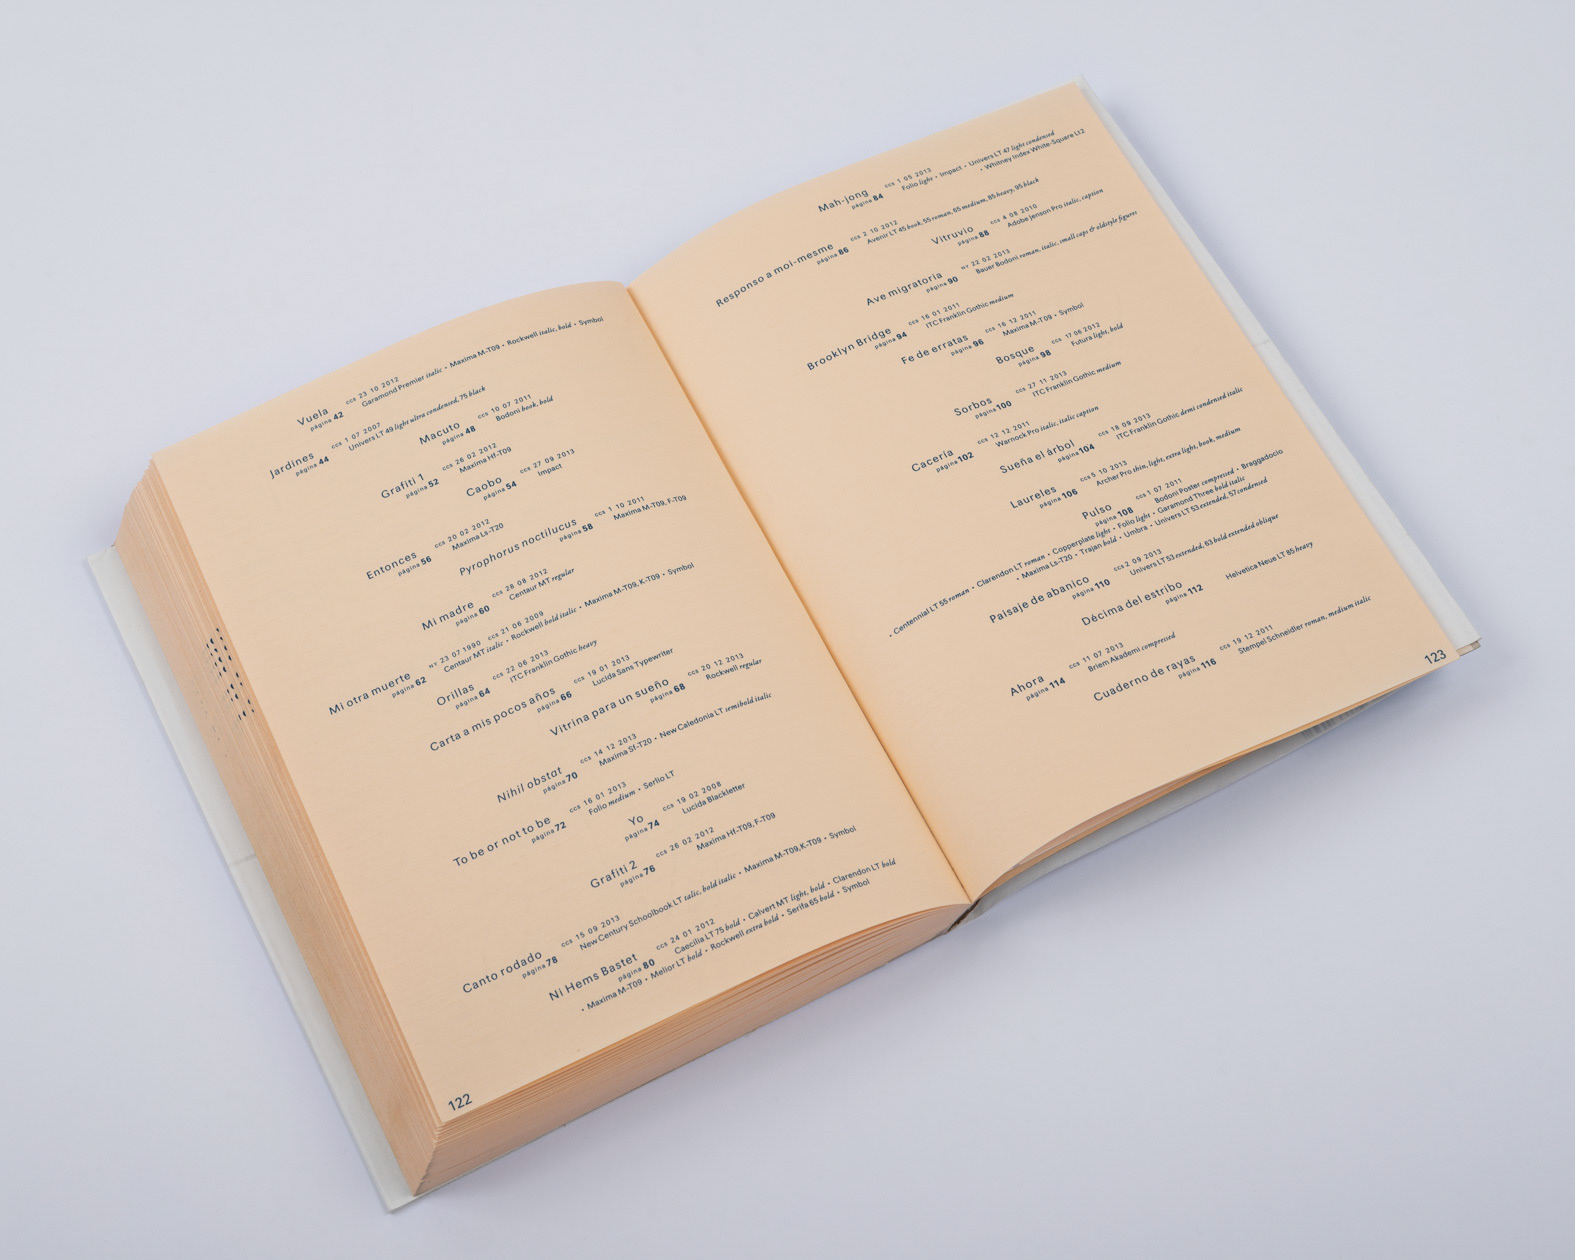 Vuela ccs 23 10 2012
página 42 Garamond Premier italic • Maxima M-T09 • Rockwell italic, bold • Symbol
Jardines ccs 1 07 2007
página 44 Univers LT 49 light ultra condensed, 75 black
Macuto ccs 10 07 2011
página 48 Bodoni book, bold
Grafiti 1 ccs 26 02 2012
página 52 Maxima Hf-T09
Caobo ccs 27 09 2013
página 54 Impact
Entonces ccs 20 02 2012
página 56 Maxima Ls-T20
Pyrophorus noctilucus ccs 1 10 2011
página 58 Maxima M-T09, F-T09
Mi madre ccs 28 08 2012
página 60 Centaur MT regular
Mi otra muerte NY 23 07 1990 ccs 21 06 2009
página 62 Centaur MT italic • Rockwell bold italic • Maxima M-T09, K-T09 • Symbol
Orillas ccs 22 06 2013
página 64 ITC Franklin Gothic heavy
Carta a mis pocos años ccs 19 01 2013
página 66 Lucida Sans Typewriter
Vitrina para un sueño ccs 20 12 2013
página 68 Rockwell regular
Nihil obstat ccs 14 12 2013
página 70 Maxima Sf-T20 • New Caledonia LT semibold italic
To be or not to be ccs 16 01 2013
página 72 Folio medium • Serlio LT
Yo ccs 19 02 2008
página 74 Lucida Blackletter
Grafiti 2 ccs 26 02 2012
página 76 Maxima Hf-T09, F-T09
Canto rodado ccs 15 09 2013
página 78 New Century Schoolbook LT italic, bold italic • Maxima M-T09, K-T09 • Symbol
Ni Hems Bastet ccs 24 01 2012
página 80 Caecilia LT 75 bold • Calvert MT light, bold • Clarendon LT bold
• Maxima M-T09 • Melior LT bold • Rockwell extra bold • Serifa 65 bold • Symbol
122
Mah-jong ccs 1 05 2013
página 84 Folio light • Impact • Univers LT 47 light condensed
• Whitney Index White-Square Lt2
Responso a moi-mesme ccs 2 10 2012
página 86 Avenir LT 45 book, 55 roman, 65 medium, 85 heavy, 95 black
Vitruvio ccs 4 08 2010
página 88 Adobe Jenson Pro italic, caption
Ave migratoria NY 22 02 2013
página 90 Bauer Bodoni roman, italic, small caps & oldstyle figures
Brooklyn Bridge ccs 16 01 2011
página 94 ITC Franklin Gothic medium
Fe de erratas ccs 16 12 2011
página 96 Maxima M-T09 • Symbol
Bosque ccs 17 06 2012
página 98 Futura light, bold
Sorbos ccs 27 11 2013
página 100 ITC Franklin Gothic medium
Cacería ccs 12 12 2011
página 102 Warnock Pro italic, italic caption
Sueña el árbol ccs 18 09 2013
página 104 ITC Franklin Gothic demi condensed italic
Laureles ccs 5 10 2013
página 106 Archer Pro thin, light, extra light, book, medium
Pulso ccs 1 07 2011
página 108 Bodoni Poster compressed • Braggadocio
• Centennial LT 55 roman • Clarendon LT roman • Copperplate light • Folio light • Garamond Three bold italic
• Maxima Ls-T20 • Trajan bold • Umbra • Univers LT 53 extended, 57 condensed
Paisaje de abanico ccs 2 09 2013
página 110 Univers LT 53 extended, 63 bold extended oblique
Décima del estribo
página 112 Helvetica Neue LT 85 heavy
Ahora ccs 11 07 2013
página 114 Briem Akademi compressed
Cuaderno de rayas ccs 19 12 2011
página 116 Stempel Schneidler roman, medium italic
123